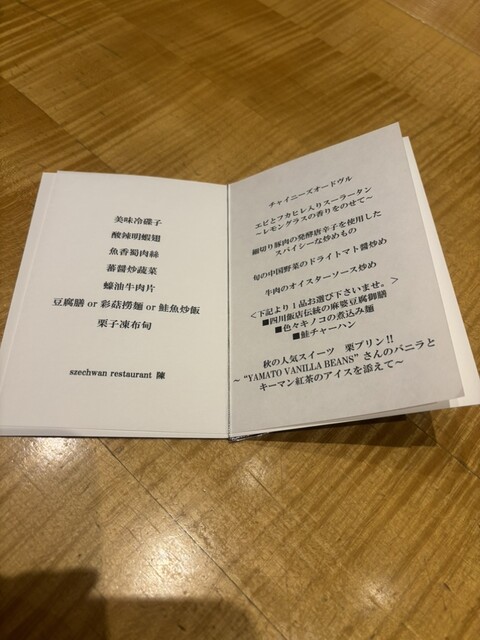 美味冷碟子
酸辣明蝦翅
魚香蜀肉絲
蕃醬炒蔬菜
蠔油牛肉片
豆腐膳 or 彩菇撈麺 or 鮭魚炒飯
栗子凍布甸
szechwan restaurant 陳
チャイニーズオードヴル
エビとフカヒレ入りスーラータン
～レモングラスの香りをのせて～
細切り豚肉の発酵唐辛子を使用した
スパイシーな炒めもの
旬の中国野菜のドライトマト醤炒め
牛肉のオイスターソース炒め
＜下記より１品お選び下さいませ。＞
■四川飯店伝統の麻婆豆腐御膳
■色々キノコの煮込み麺
■鮭チャーハン
秋の人気スイーツ　栗プリン!!
～“YAMATO VANILLA BEANS”さんのバニラと
キーマン紅茶のアイスを添えて～